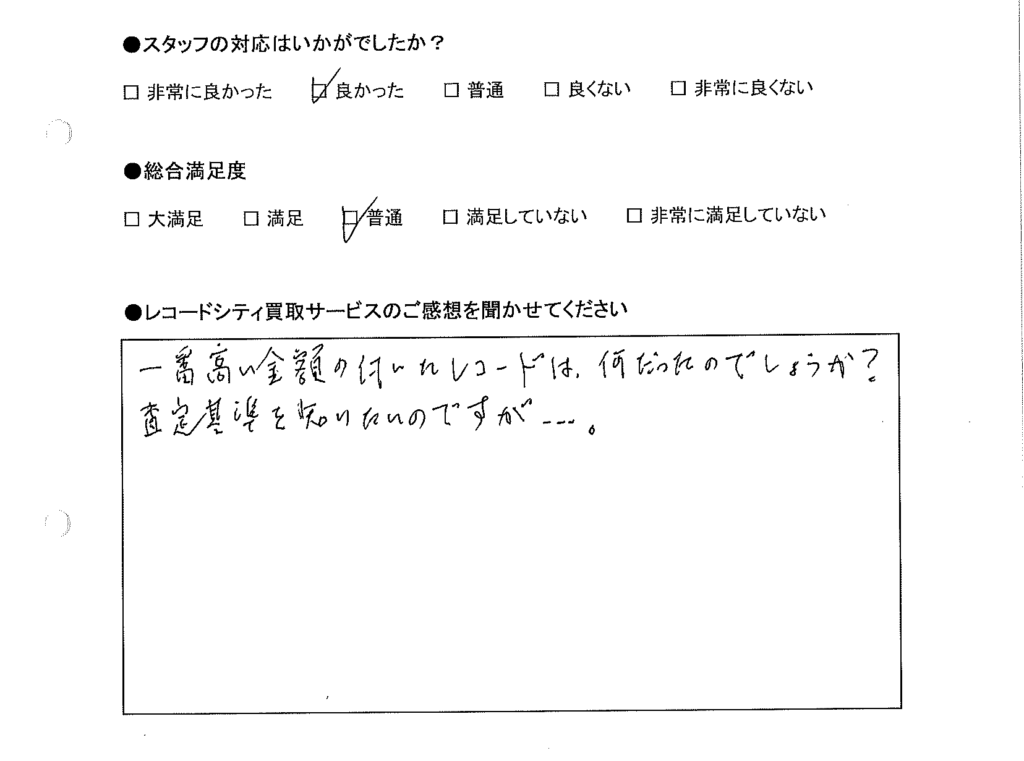 ●スタッフの対応はいかがでしたか？
□ 非常に良かった ☑ 良かった □ 普通 □ 良くない □ 非常に良くない
●総合満足度
□ 大満足 □ 満足 ☑ 普通 □ 満足していない □ 非常に満足していない
●レコードシティ買取サービスのご感想を聞かせてください
一番高い金額の付いたレコードは、何だったのでしょうか?
査定基準を知りたいのですが…。